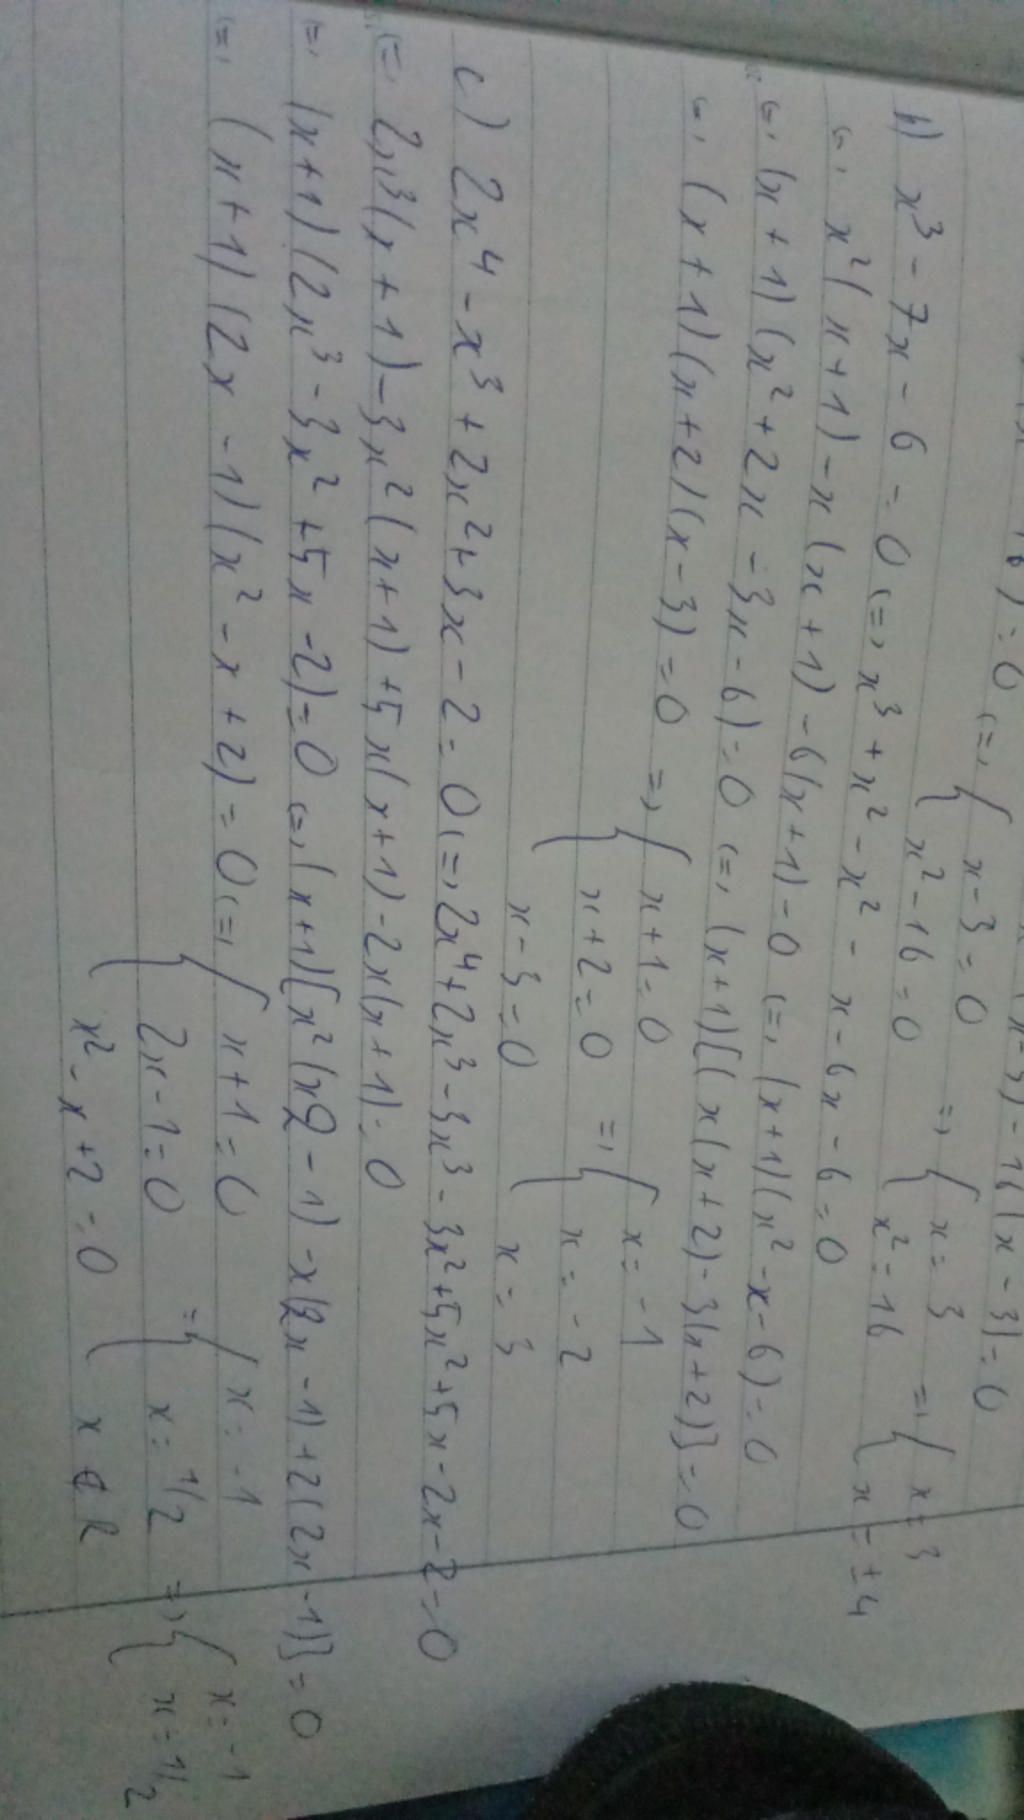 (x - 3) = 0 <=> { x - 3 = 0
x² - 16 = 0 => { x = 3
x² = 16 => { x = 3
x = ±4
b) x³ - 7x - 6 = 0 <=> x³ + x² - x² - x - 6x - 6 = 0
<=> x²(x + 1) - x(x + 1) - 6(x + 1) = 0 <=> (x + 1)(x² - x - 6) = 0
<=> (x + 1)(x² + 2x - 3x - 6) = 0 <=> (x + 1)[(x(x + 2) - 3(x + 2)] = 0
<=> (x + 1)(x + 2)(x - 3) = 0 => { x + 1 = 0
x + 2 = 0
x - 3 = 0 => { x = -1
x = -2
x = 3
c) 2x⁴ - x³ + 2x² + 3x - 2 = 0 <=> 2x⁴ + 2x³ - 3x³ - 3x² + 5x² + 5x - 2x - 2 = 0
<=> 2x³(x + 1) - 3x²(x + 1) + 5x(x + 1) - 2x(x + 1) = 0
<=> (x + 1)(2x³ - 3x² + 5x - 2) = 0 <=> (x + 1)[x²(x2 - 1) - x(2x - 1) + 2(2x - 1)] = 0
<=> (x + 1)(2x - 1)(x² - x + 2) = 0 <=> { x + 1 = 0
2x - 1 = 0
x² - x + 2 = 0 => { x = -1
x = 1/2
x ∉ R => { x = -1
x = 1/2